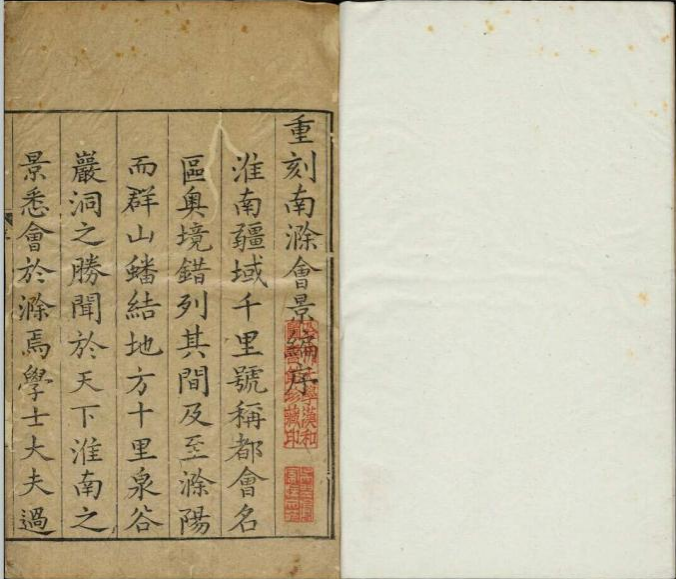 重刻南滁會景編序
淮南疆域千里號稱都會名
區奧境錯列其間及至滁陽
而群山蟠結地方十里泉谷
巖洞之勝聞於天下淮南之
景悉會於滁焉學士大夫過